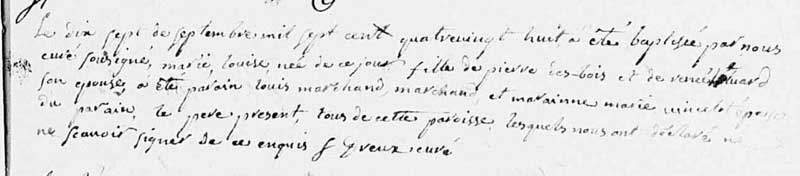 Le dix sept de septembre mil sept cent quatrevingt huit a été baptisée par nous
curé sousigné, marie louise née de ce jour fille de pierre des-bois et de renée
son epouse, a été parain louis marchand, marchand, et marainne marie vincelot épouse
du parain, le pere present, tous de cette paroisse lesquels nous ont déclaré ne
ne scavoir signer de ce enquis f Greux curé